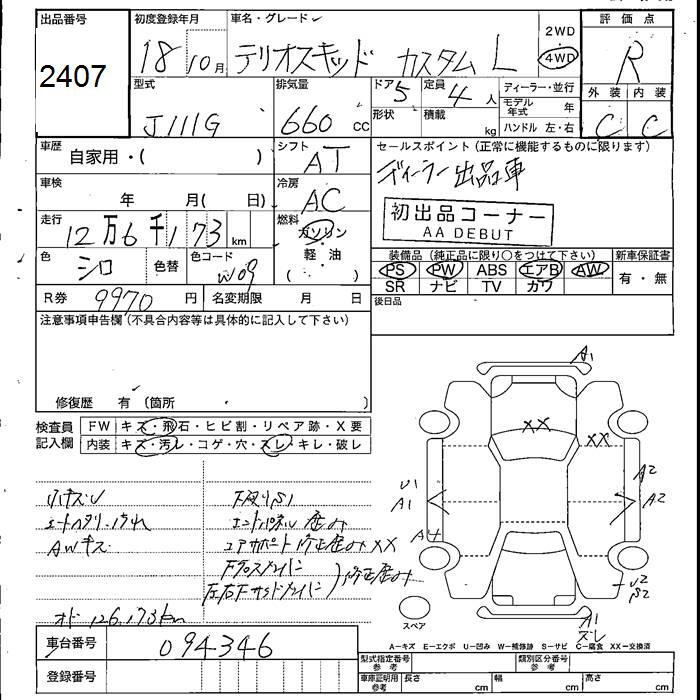 出品番号
2407
初度登録年月
18 10月
車名・グレード
テリオスキッド カスタム L
2WD
4WD
評価点
R
外装 内装
C C
型式
J111G
排気量
660 cc
ドア 5
形状
定員 4 人
積載 kg
ディーラー・並行
モデル年式 年
ハンドル 左・右
車歴 自家用・( )
シフト AT
セールスポイント(正常に機能するものに限ります)
ディーラー出品車
初出品コーナー
AA DEBUT
車検 年 月( 日)
冷房 AC
走行 12万6千173 km
燃料 ガソリン・軽・油 ( )
色 シロ 色替
色コード W09
R券 9970 円
名変期限 月 日
装備品(純正品に限り○をつけて下さい)
新車保証書
PS PW ABS エアB AW
SR ナビ TV カワ
有・無
後日品
注意事項申告欄(不具合内容等は具体的に記入して下さい)
修復歴 有(箇所 )
検査員記入欄
FW キズ・飛石・ヒビ割・リペア跡・X要
内装 キズ・汚レ・コゲ・穴・スレ・キレ・破レ
小キズU
AWキズ
オド 126,173km
XX
A1
XX
XX
U1
A1
A2
A2
U2
S2
A1
スレ
スペア
A-キズ E-エクボ U-凹み W-補修跡 S-サビ C-腐食 XX-交換済
車台番号 094346
登録番号
型式指定番号 参考
類別区分番号 参考
車庫証明用 参考
長さ cm
幅 cm
高さ cm